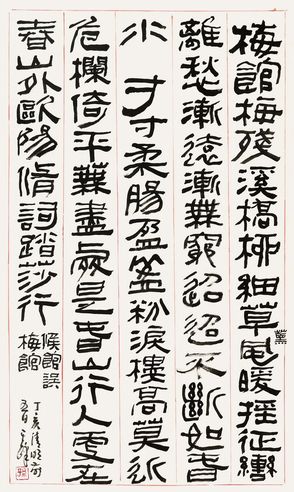 梅館梅殘溪橋柳細草風暖搖征轡
薰
離愁漸遠漸無窮迢迢不斷如春
水 寸寸柔腸盈盈粉淚樓高莫近
危欄倚平蕪盡處是春山行人更在
春山外歐陽脩詞踏莎行
候館誤
梅館
丁亥清明前
五日